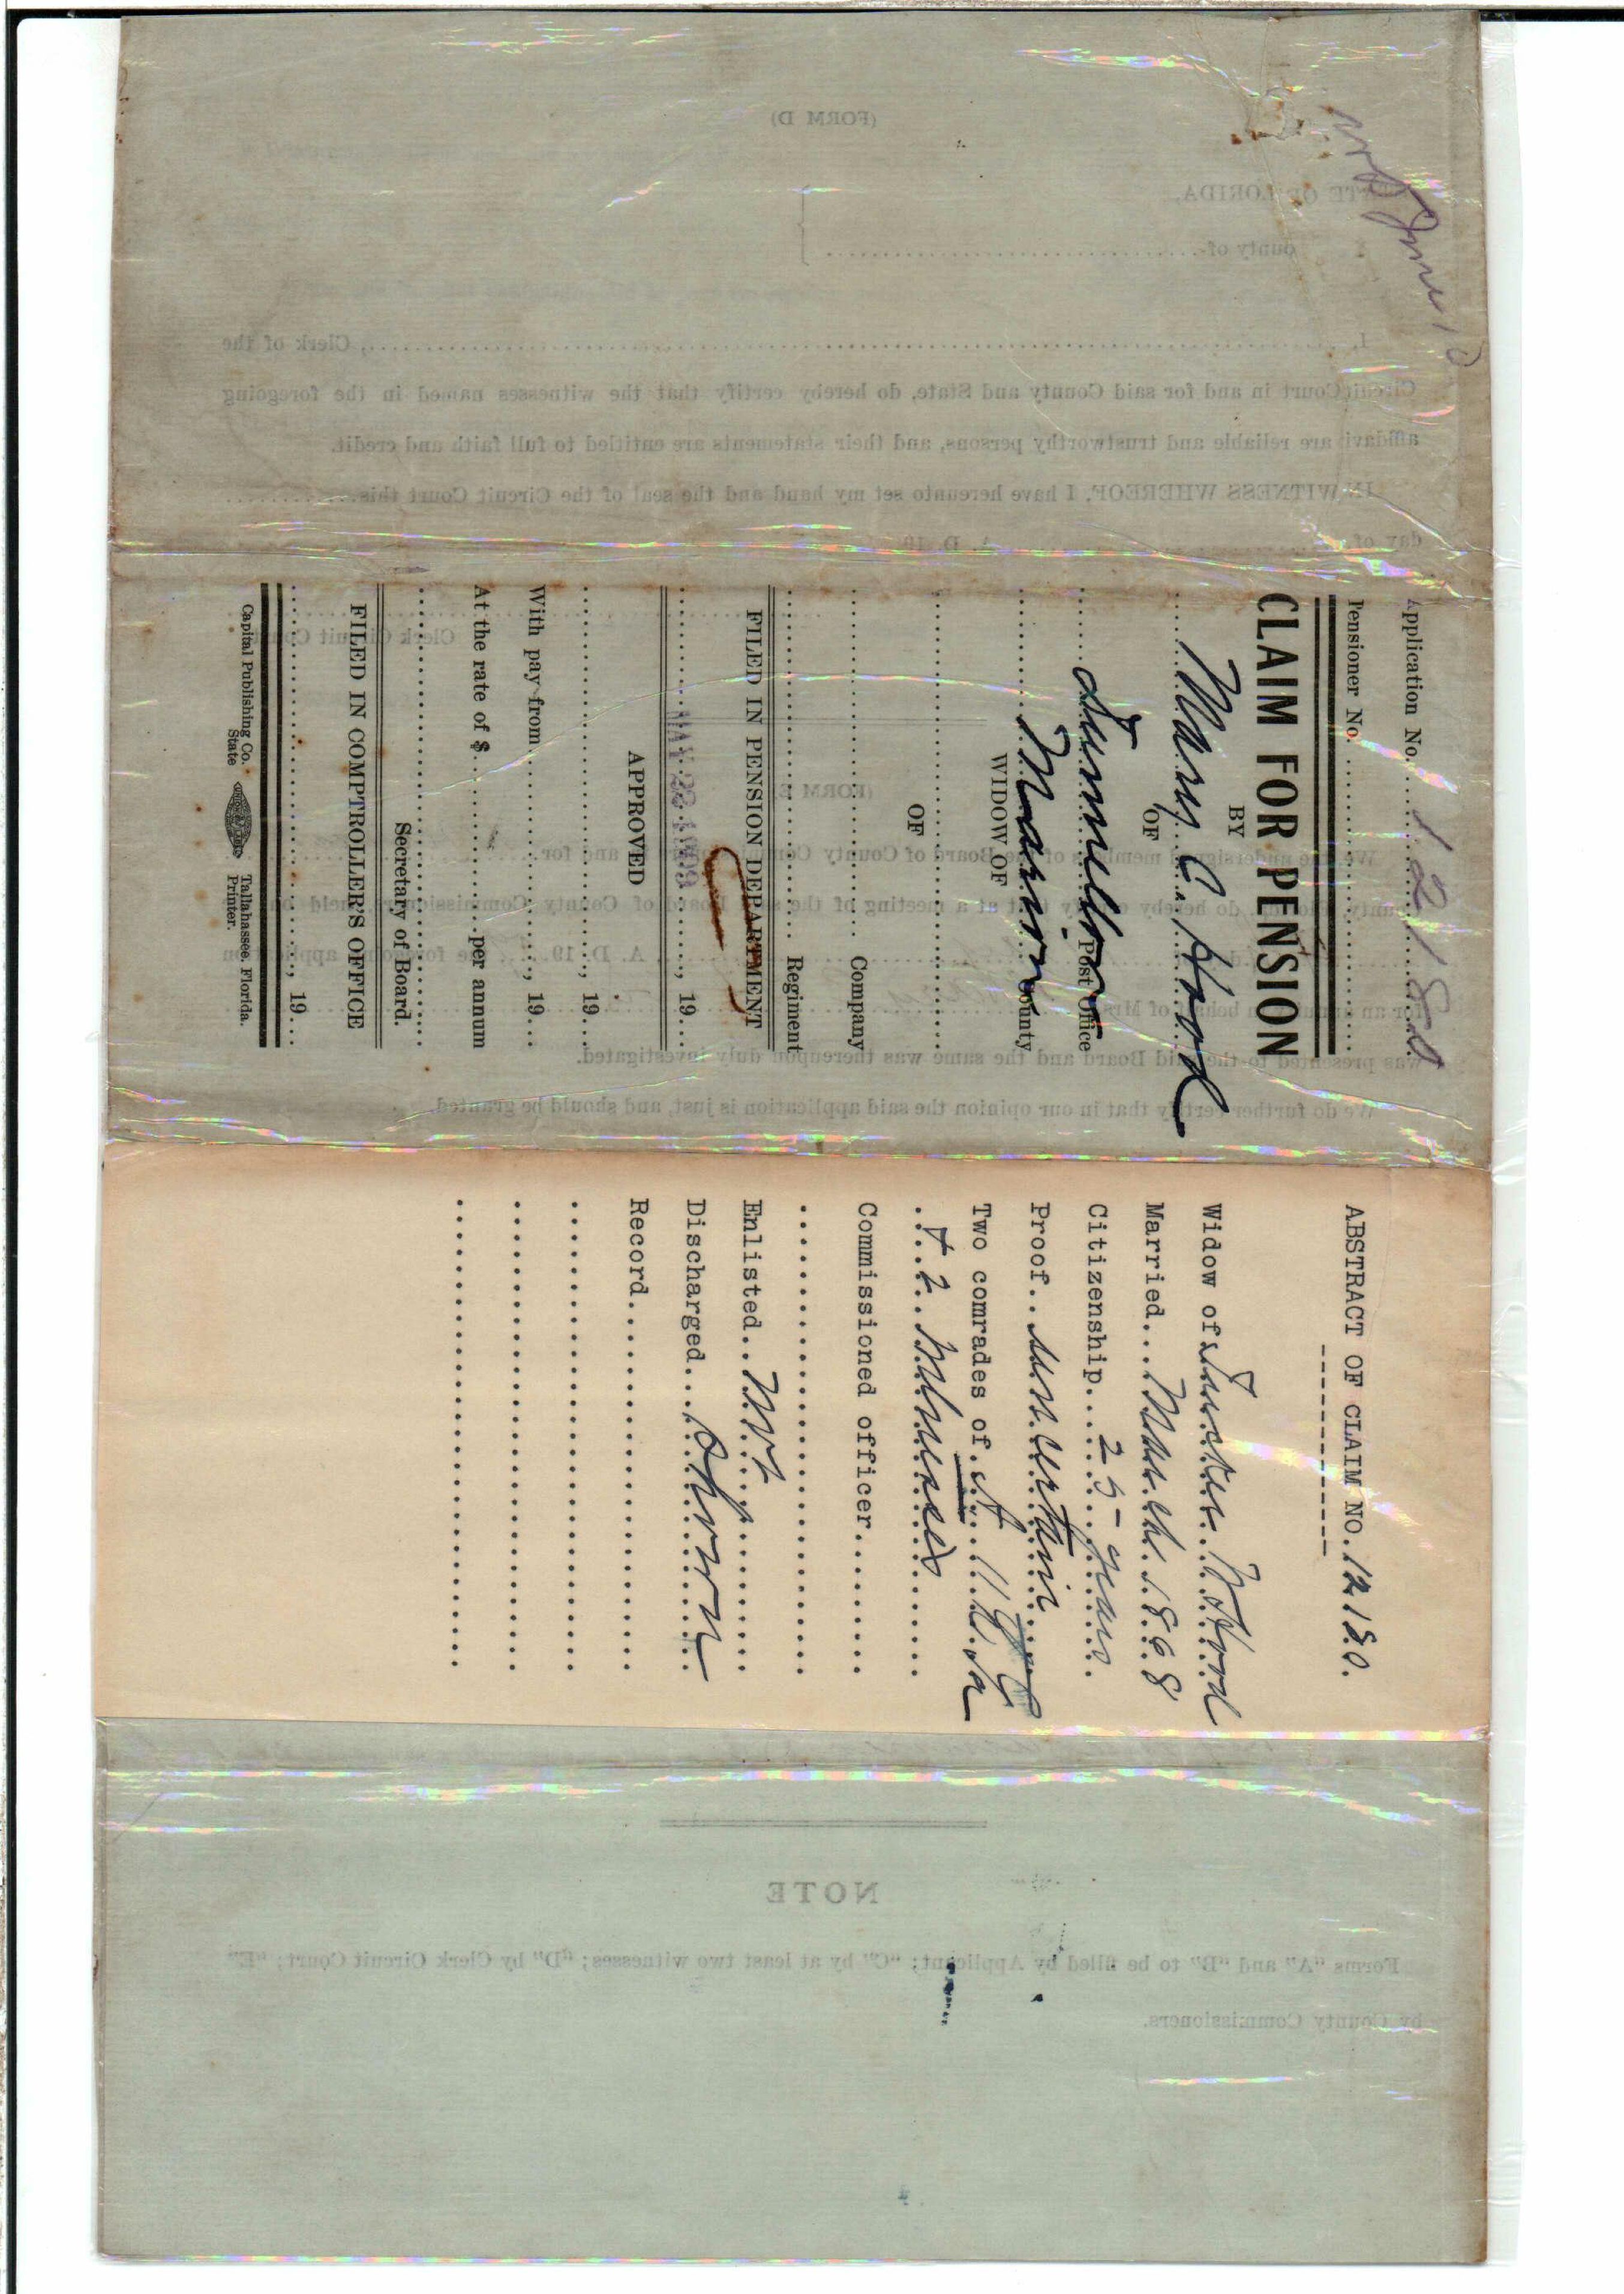 Application No. 12180
Pensioner No.
CLAIM FOR PENSION
BY
Mary C. Hood
OF
Dunnellon Post Office
Marion County
WIDOW OF
OF
Company
Regiment
FILED IN PENSION DEPARTMENT
MAY 22 1909, 19
APPROVED
, 19
With pay from , 19
At the rate of $ per annum
Secretary of Board.
FILED IN COMPTROLLER'S OFFICE
, 19
Capital Publishing Co. State Tallahassee, Florida. Printer.
ABSTRACT OF CLAIM NO. 12180.
Widow of Hood
Married March 1868
Citizenship 25 years
Proof uncertain
Two comrades of
& 2
Commissioned officer
Enlisted Not
Discharged shown
Record
(FORM D)
STATE OF FLORIDA,
County of
I, , Clerk of the
Circuit Court in and for said County and State, do hereby certify that the witnesses named in the foregoing
affidavit are reliable and trustworthy persons, and their statements are entitled to full faith and credit.
IN WITNESS WHEREOF, I have hereunto set my hand and the seal of the Circuit Court this
day of A. D. 19
Clerk Circuit Court
(FORM E)
We, the undersigned members of the Board of County Commissioners in and for
County, do hereby certify that at a meeting of the said Board of County Commissioners held
A. D. 19 the foregoing application
for an on behalf of Mrs.
was presented to the said Board and the same was thereupon duly investigated.
We do further certify that in our opinion the said application is just, and should be granted.
NOTE
Forms "A" and "B" to be filled by Applicant; "C" by at least two witnesses; "D" by Clerk Circuit Court; "E"
by County Commissioners.